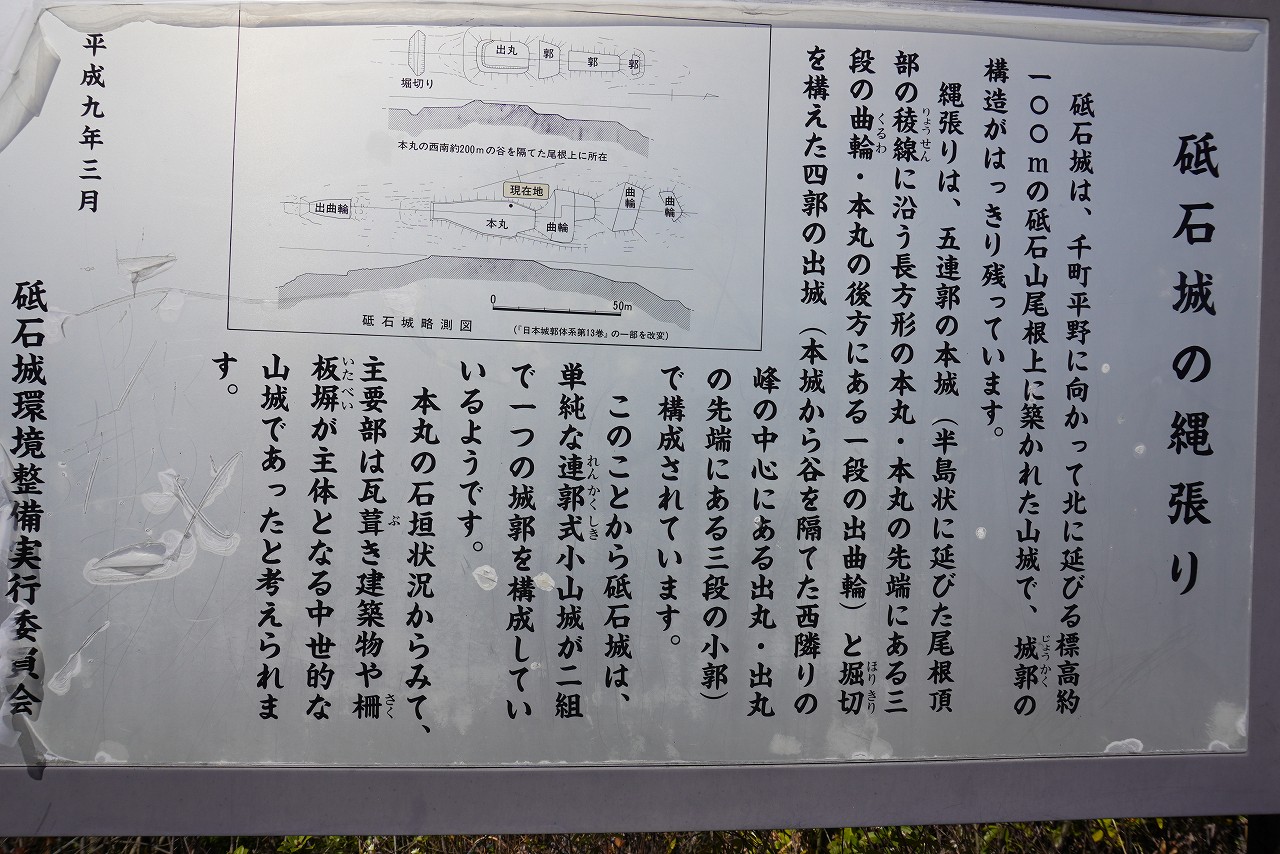 砥石城の縄張り
砥石城は、千町平野に向かって北に延びる標高約
一〇〇mの砥石山尾根上に築かれた山城で、城郭の
じょうかく
構造がはっきり残っています。
縄張りは、五連郭の本城（半島状に延びた尾根頂
部の稜線に沿う長方形の本丸・本丸の先端にある三
りょうせん
段の曲輪・本丸の後方にある一段の出曲輪）と堀切
くるわ
ほりきり
を構えた四郭の出城（本城から谷を隔てた西隣りの
峰の中心にある出丸・出丸
の先端にある三段の小郭）
で構成されています。
このことから砥石城は、
単純な連郭式小山城が二組
れんかくしき
で一つの城郭を構成してい
いるようです。
本丸の石垣状況からみて、
主要部は瓦葺き建築物や柵
ぶ
さく
板塀が主体となる中世的な
いたべい
山城であったと考えられま
す。
出丸
郭
郭
郭
堀切り
本丸の西南約200mの谷を隔てた尾根上に所在
現在地
出曲輪
本丸
曲輪
曲輪
曲輪
0
50m
砥石城略測図
（『日本城郭体系第13巻』の一部を改変）
平成九年三月
砥石城環境整備実行委員会